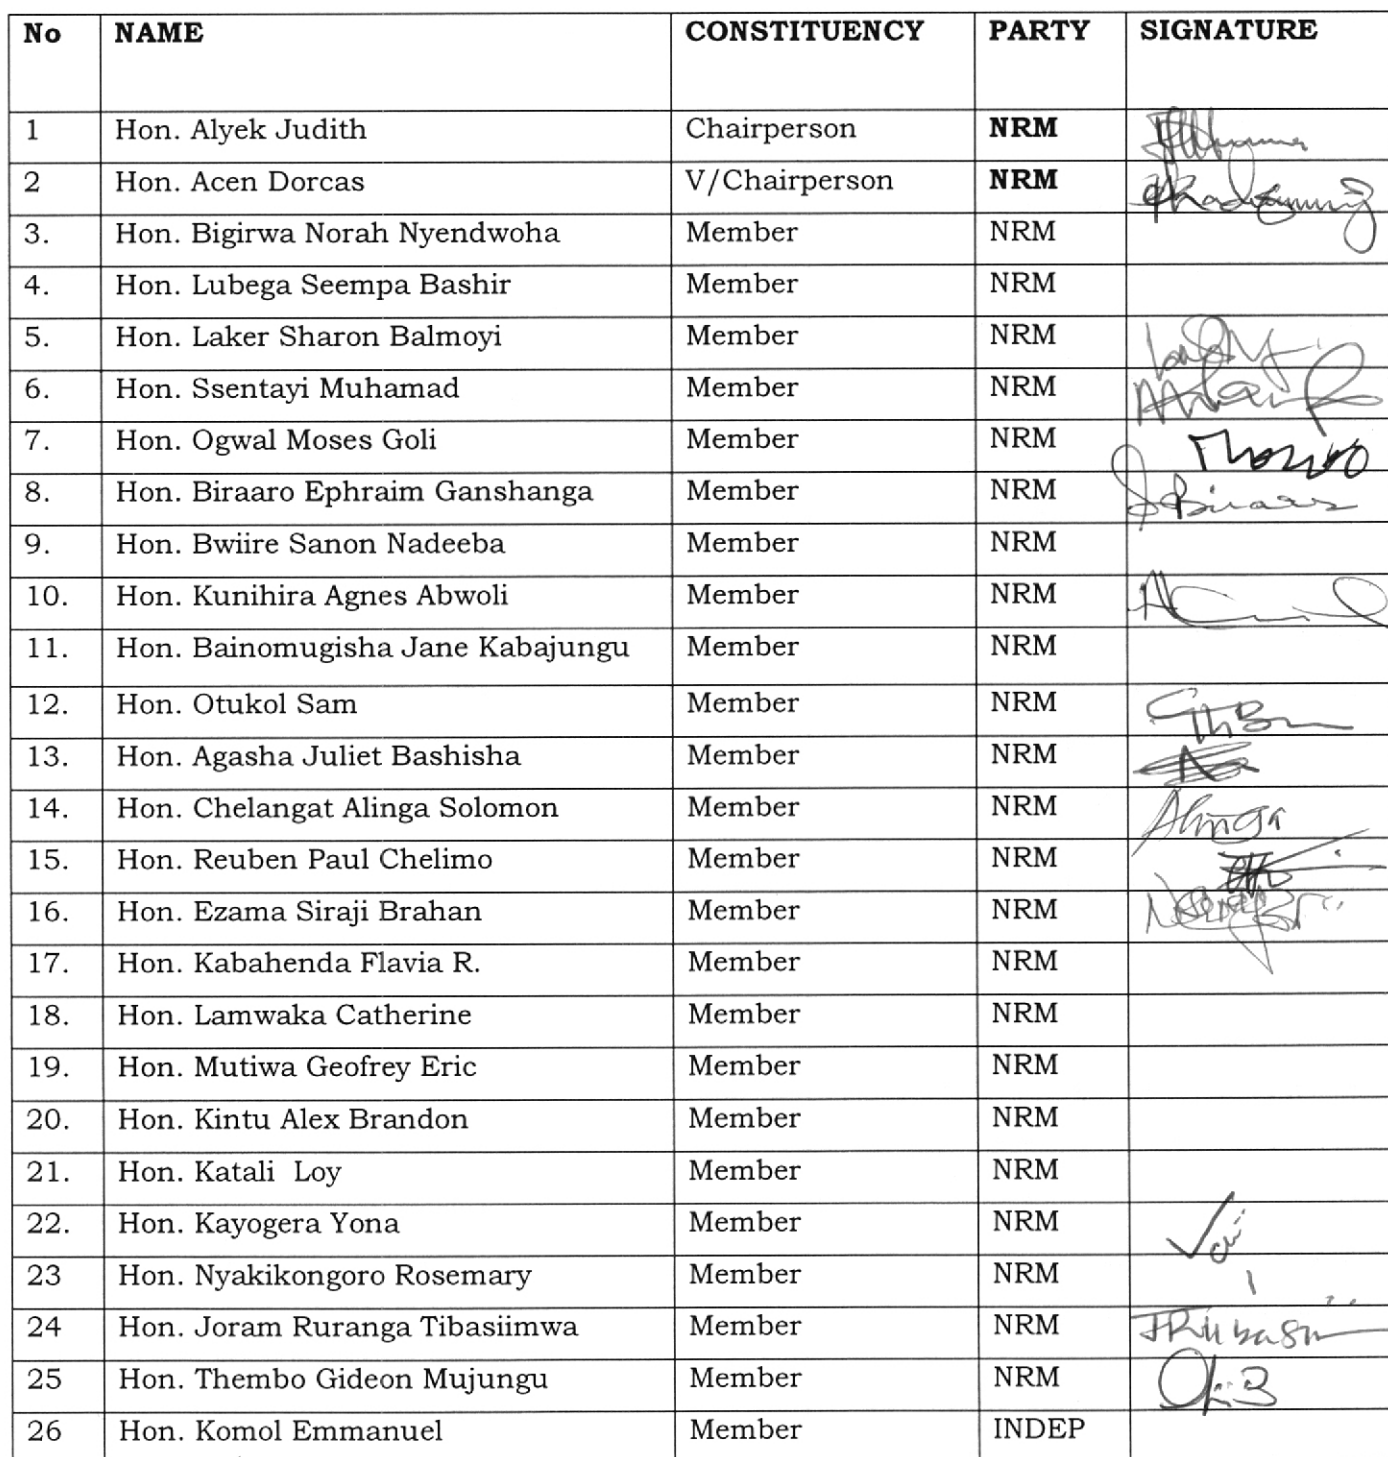 No NAME CONSTITUENCY PARTY SIGNATURE
1 Hon. Alyek Judith Chairperson NRM
2 Hon. Acen Dorcas V/Chairperson NRM
3. Hon. Bigirwa Norah Nyendwoha Member NRM
4. Hon. Lubega Seempa Bashir Member NRM
5. Hon. Laker Sharon Balmoyi Member NRM
6. Hon. Ssentayi Muhamad Member NRM
7. Hon. Ogwal Moses Goli Member NRM
8. Hon. Biraaro Ephraim Ganshanga Member NRM
9. Hon. Bwiire Sanon Nadeeba Member NRM
10. Hon. Kunihira Agnes Abwoli Member NRM
11. Hon. Bainomugisha Jane Kabajungu Member NRM
12. Hon. Otukol Sam Member NRM
13. Hon. Agasha Juliet Bashisha Member NRM
14. Hon. Chelangat Alinga Solomon Member NRM Alinga
15. Hon. Reuben Paul Chelimo Member NRM
16. Hon. Ezama Siraji Brahan Member NRM
17. Hon. Kabahenda Flavia R. Member NRM
18. Hon. Lamwaka Catherine Member NRM
19. Hon. Mutiwa Geofrey Eric Member NRM
20. Hon. Kintu Alex Brandon Member NRM
21. Hon. Katali Loy Member NRM
22. Hon. Kayogera Yona Member NRM
23 Hon. Nyakikongoro Rosemary Member NRM
24 Hon. Joram Ruranga Tibasiimwa Member NRM
25 Hon. Thembo Gideon Mujungu Member NRM
26 Hon. Komol Emmanuel Member INDEP